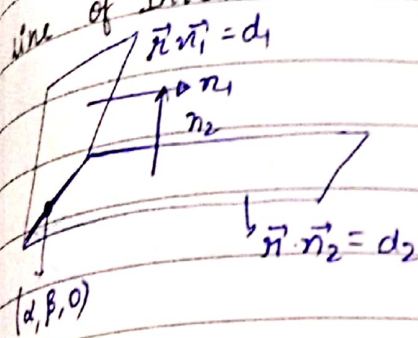 line of
r⃗·n⃗₁ = d₁
n₁
n₂
r⃗·n⃗₂ = d₂
(α, β, 0)